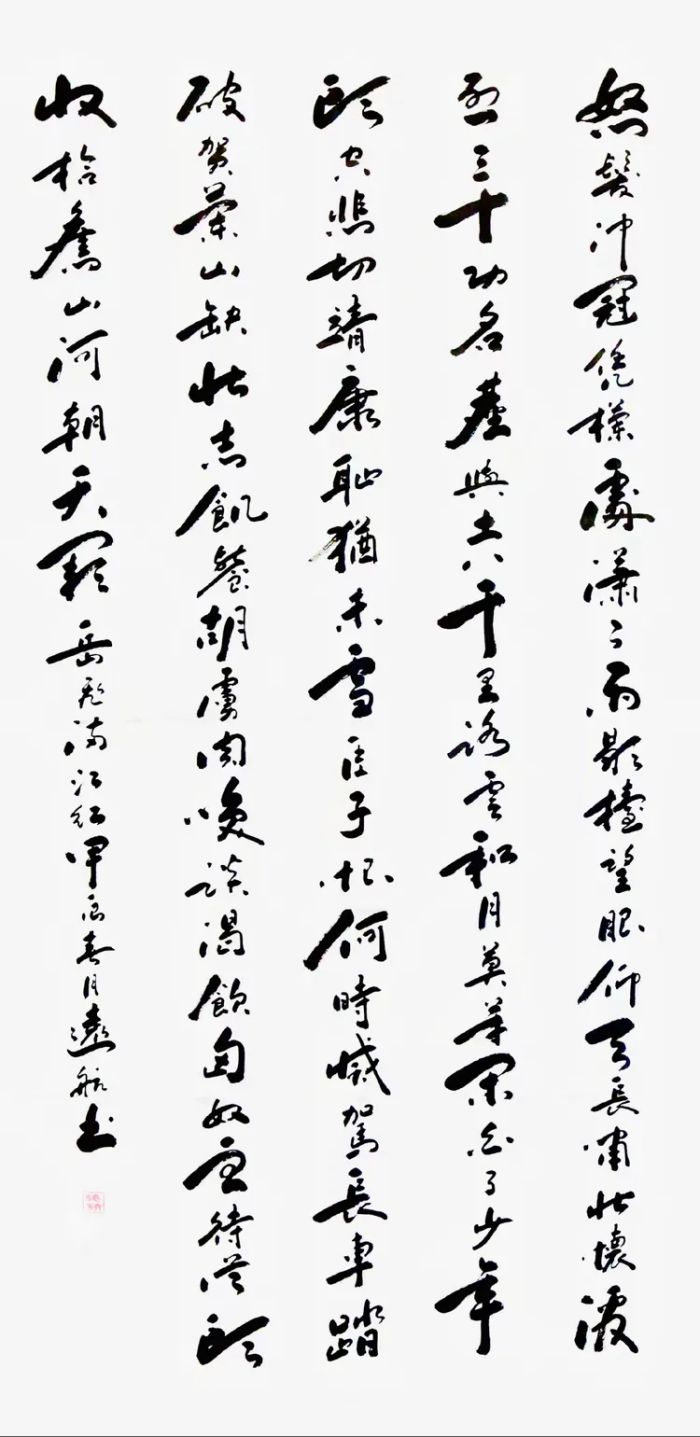 怒髮冲冠凭欄處瀟々雨歇擡望眼仰天長嘯壯懷激
烈三十功名塵與土八千里路雲和月莫等閑白了少年
頭空悲切靖康恥猶未雪臣子恨何時憾駕長車踏
破賀蘭山缺壯志飢餐胡虜肉咲談渴飲匈奴血待從頭
收拾舊山河朝天闕岳飛滿江紅甲辰春月遠航书